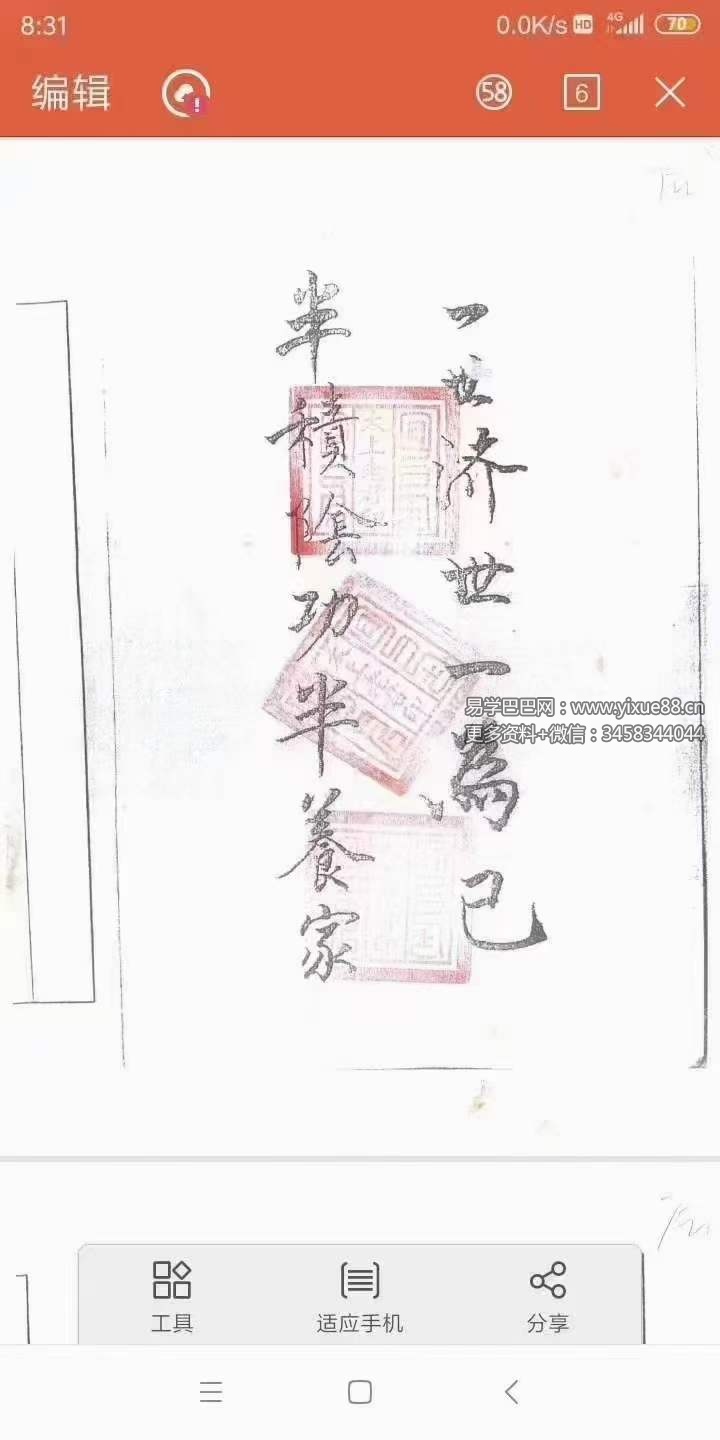 8:31 0.0K/s HD 4G 70
编辑 58 6
一世济世一為己
半積陰功半養家
易学巴巴网：www.yixue88.cn
更多资料+微信：3458344044
工具 适应手机 分享